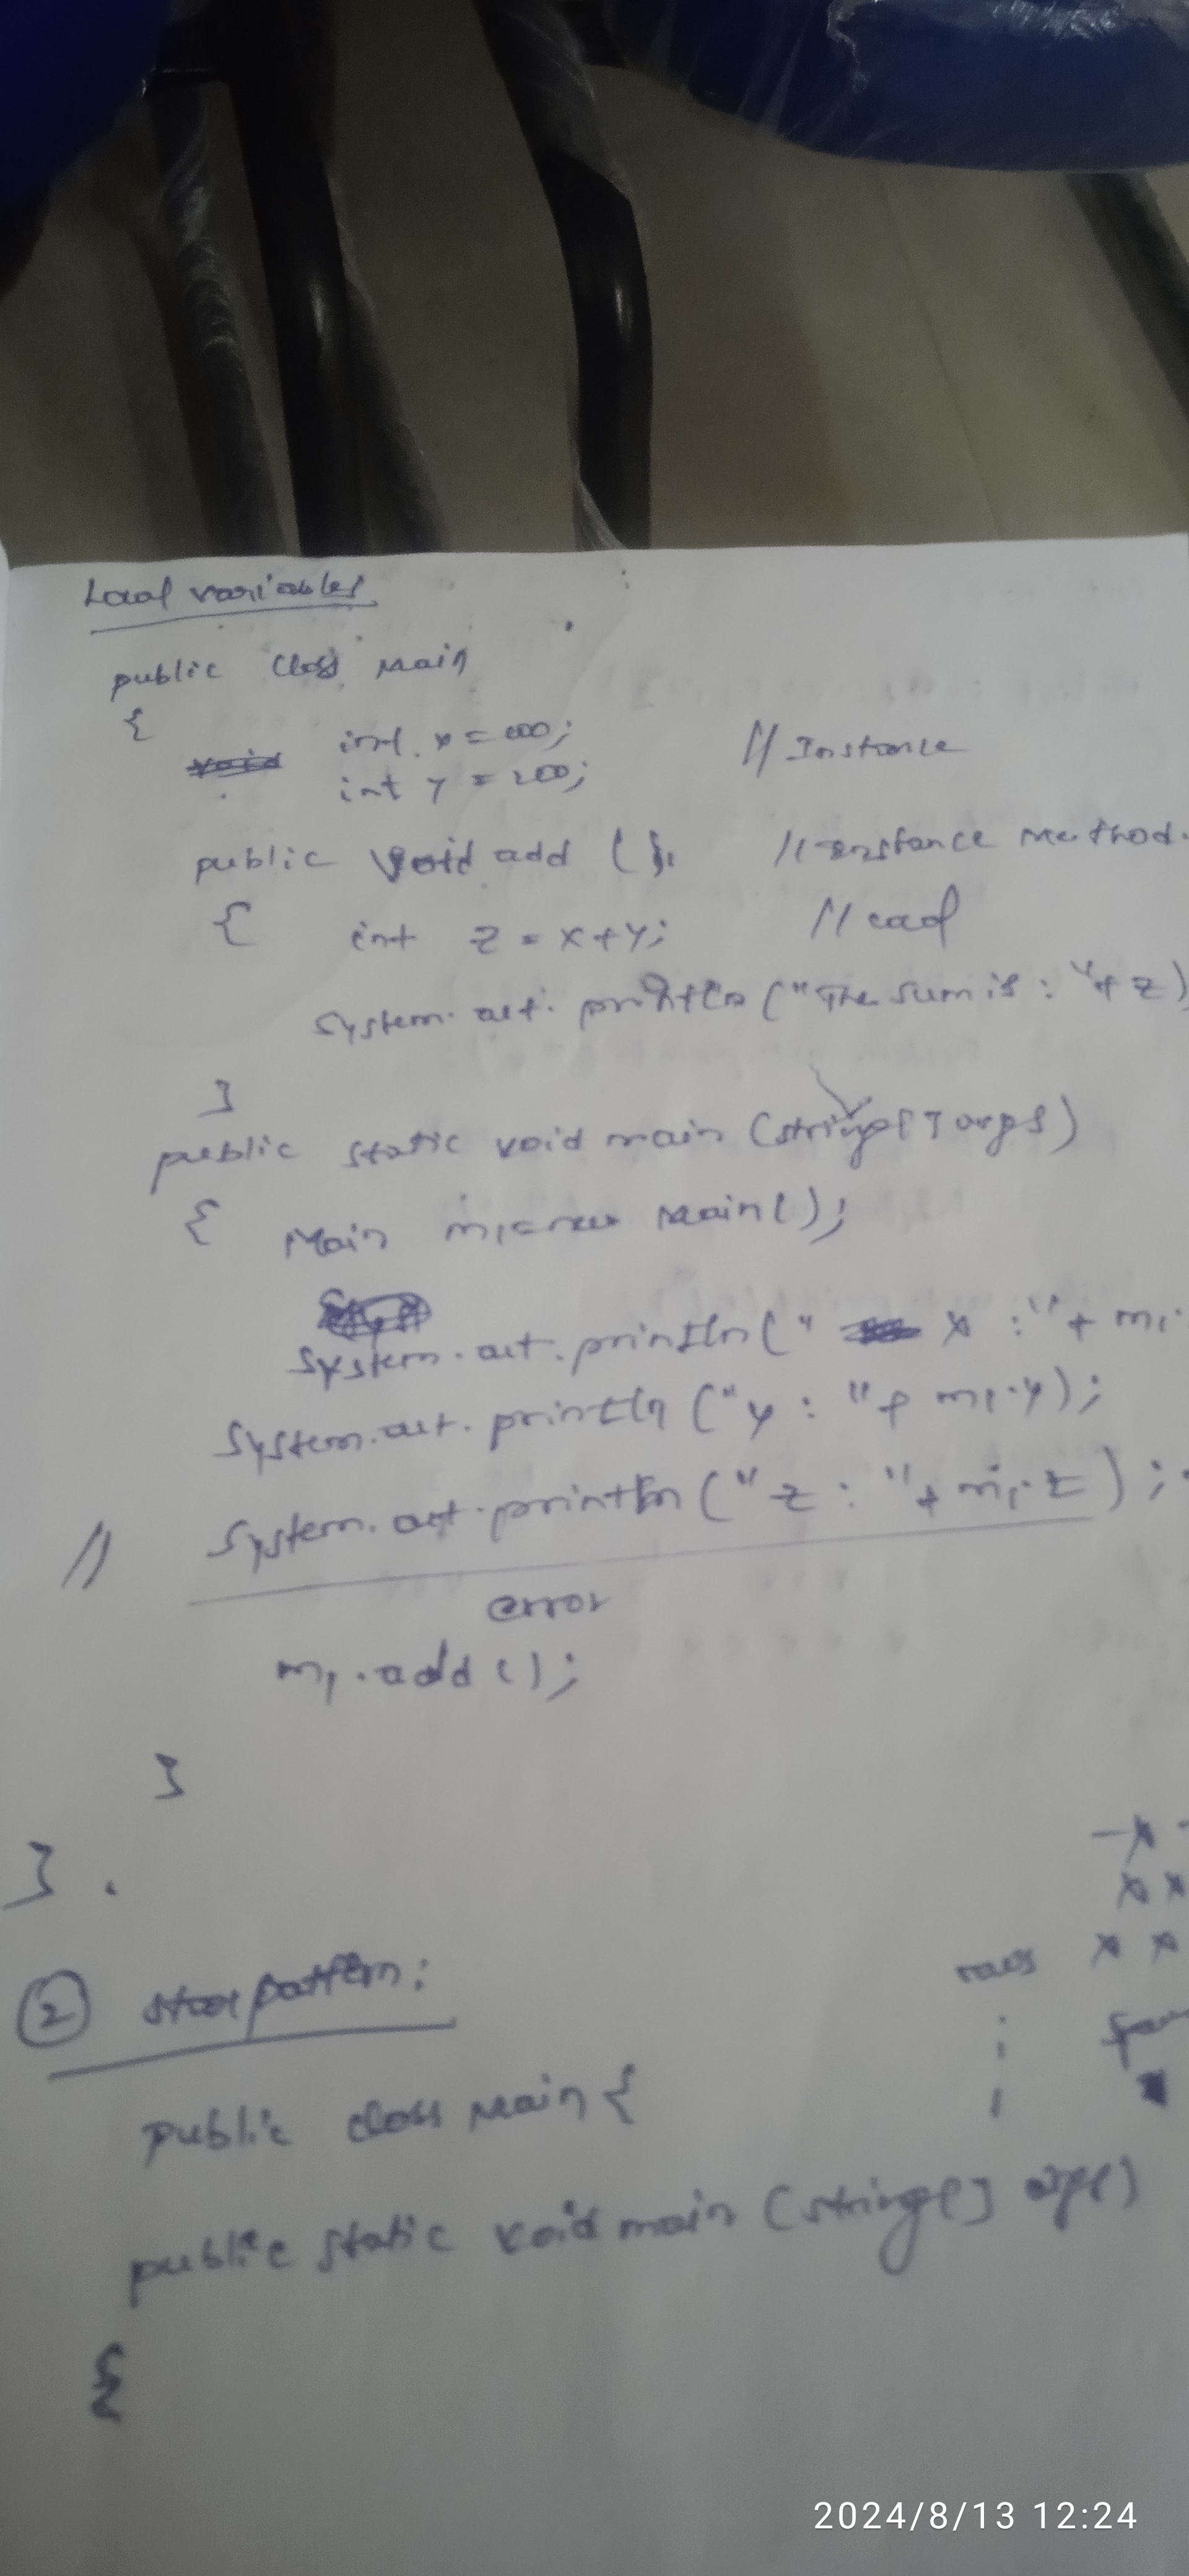 Local variables
public class Main
{
int x = 100;
void
int y = 200; // Instance
public void add () // Instance Method.
{ int z = x+y; // local
System.out.println("The sum is : "+ z)
}
public static void main (string[] args)
{ Main m1 = new Main();
System.out.println(" x : "+ m1.
System.out.println ("y : "+ m1.y);
// System.out.println ("z : "+ m1.z);
error
m1.add();
}
}.
② star pattern:
rows
public class Main {
public static void main (string[] args)
{
2024/8/13 12:24